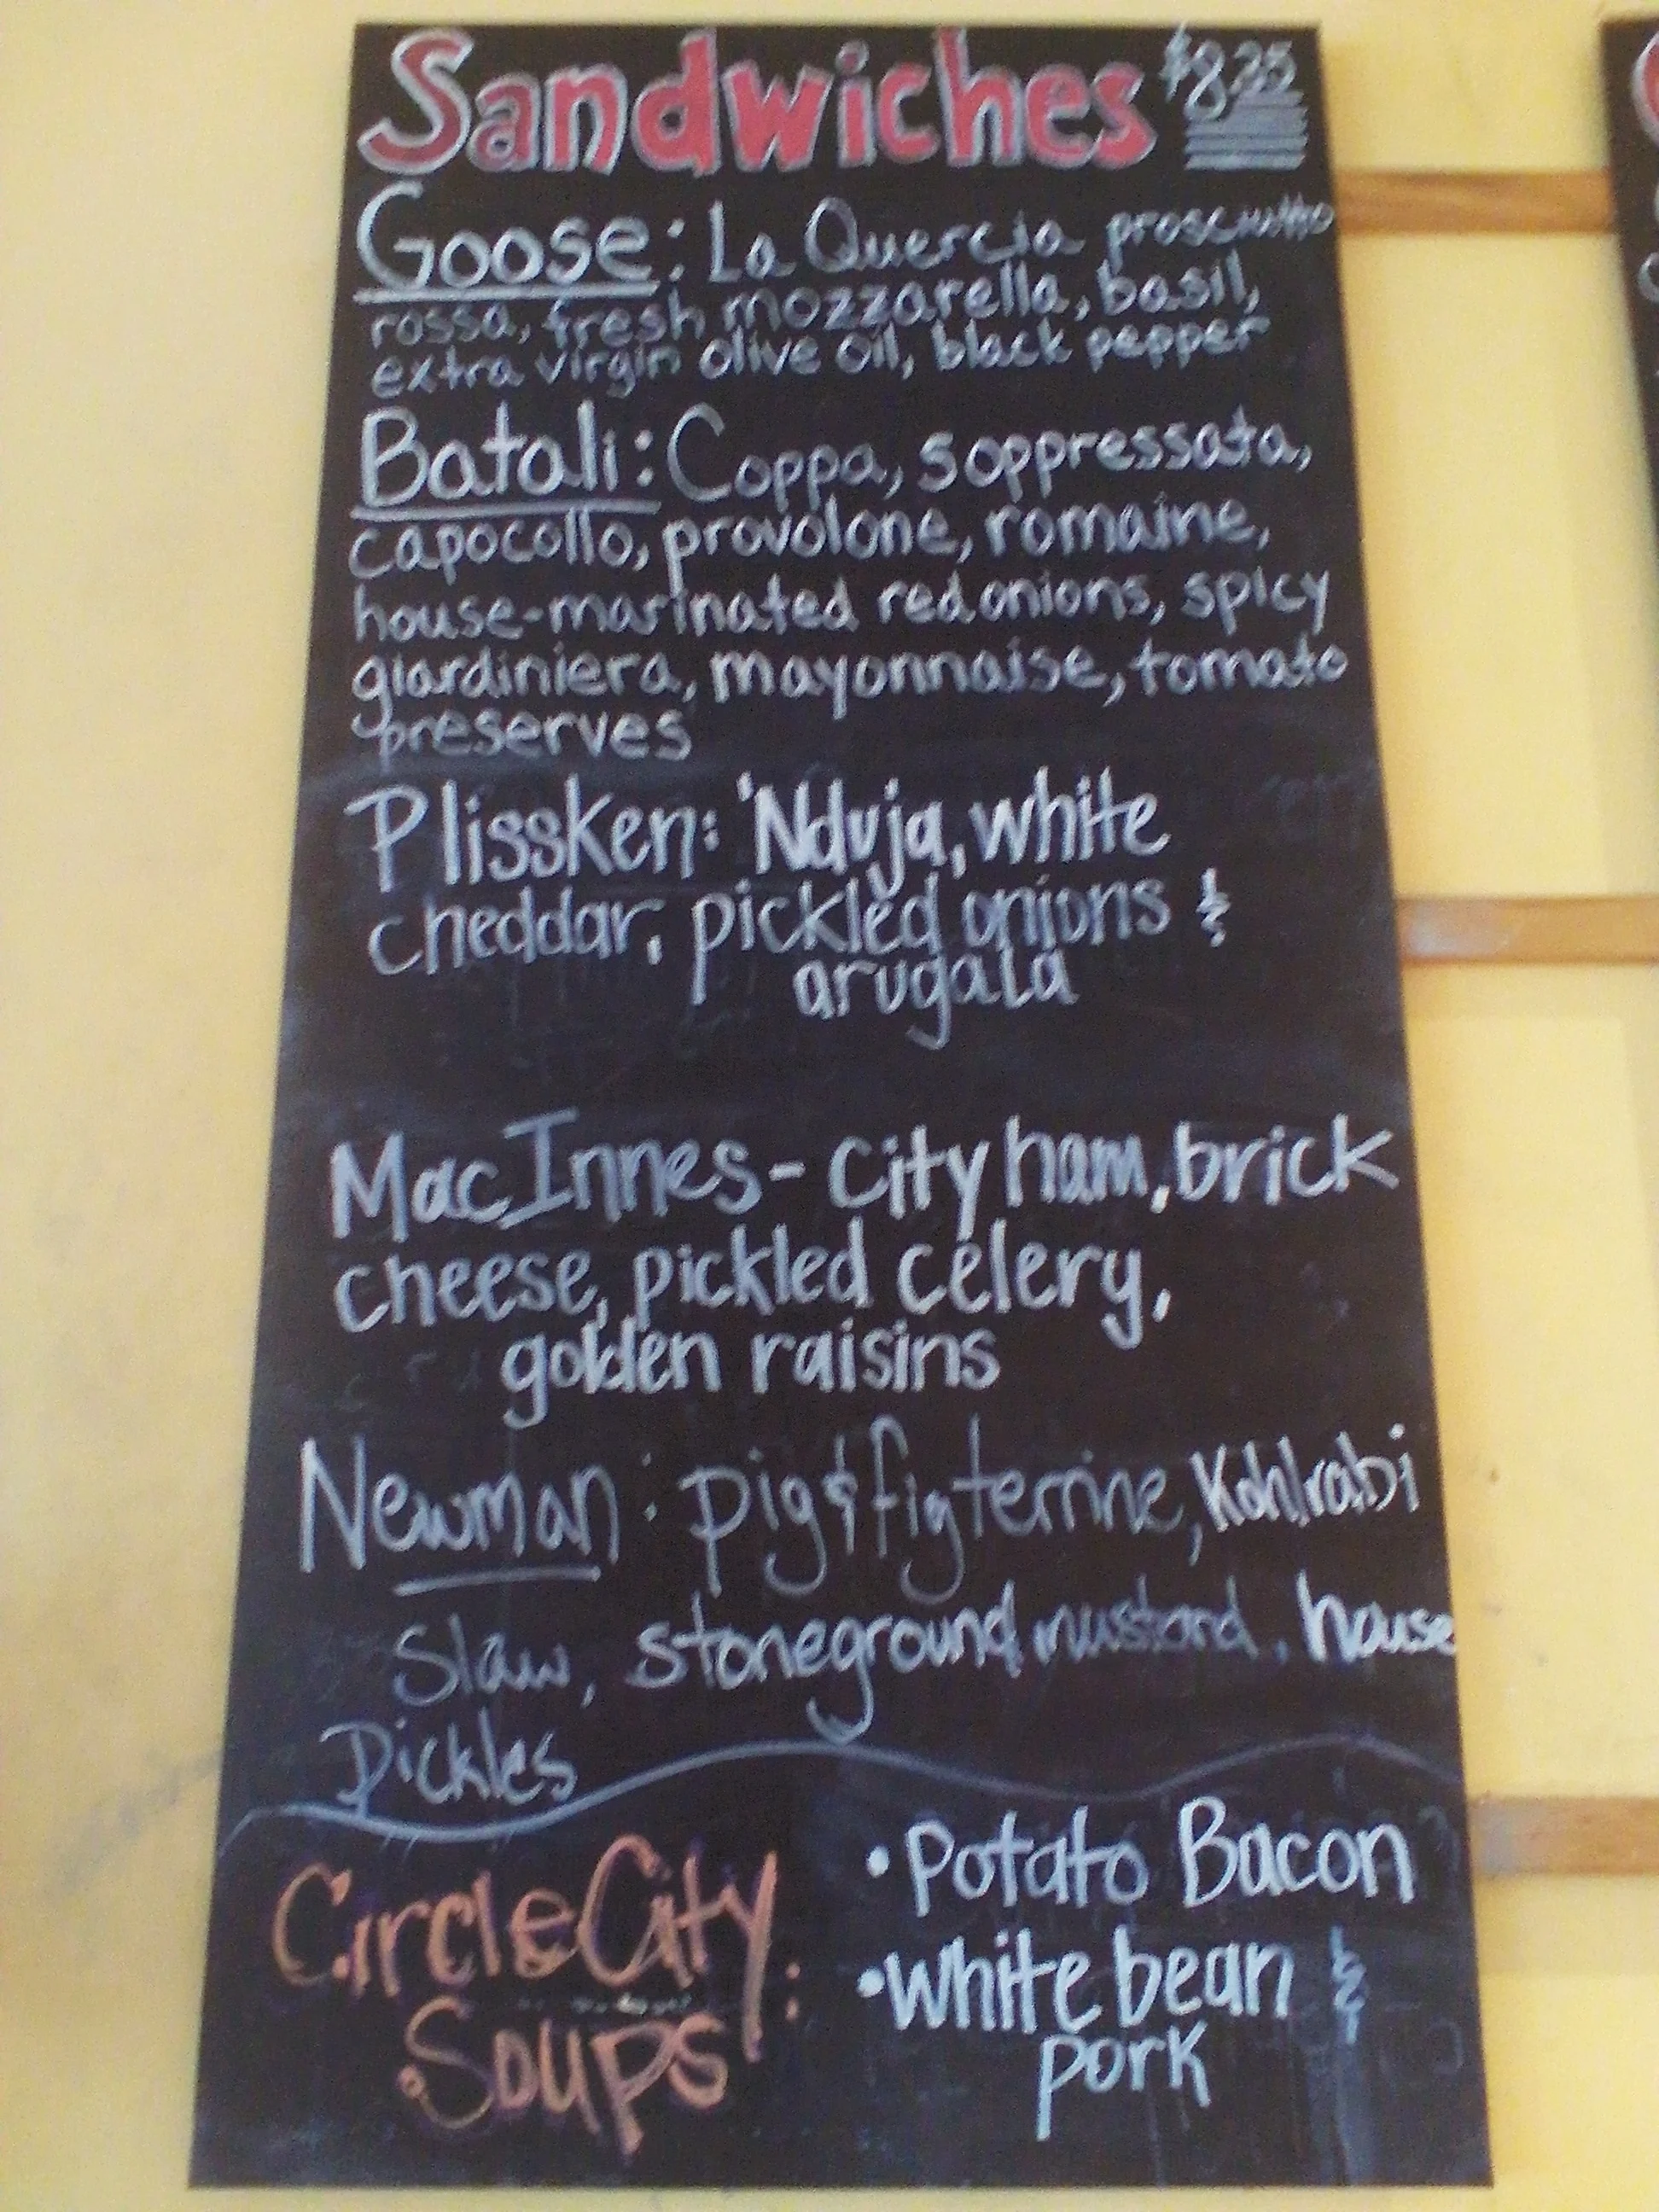 Sandwiches $8.25
Goose: La Quercia prosciutto
rossa, fresh mozzarella, basil,
extra virgin olive oil, black pepper
Batali: Coppa, soppressata,
capocollo, provolone, romaine,
house-marinated red onions, spicy
giardiniera, mayonnaise, tomato
preserves
Plissken: 'Nduja, white
cheddar, pickled onions &
arugala
MacInnes - city ham, brick
cheese, pickled celery,
golden raisins
Newman: pig & fig terrine, Kohlrabi
Slaw, stoneground mustard, house
Pickles
Circle City
Soups:
• Potato Bacon
• White bean &
pork